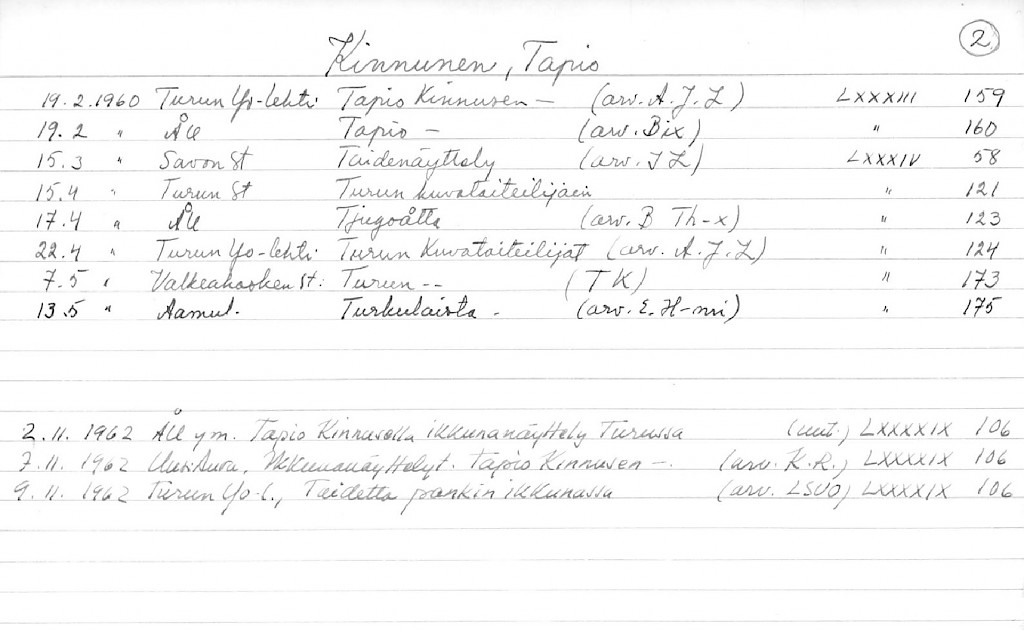 2
Kinnunen, Tapio
19.2.1960 Turun Yo-lehti Tapio Kinnusen — (arv. A.J.L) LXXXIII 159
19.2 " ÅU Tapio — (arv. Bix) " 160
15.3 " Savon St Taidenäyttely (arv. J L) LXXXIV 58
15.4 " Turun St Turun kuvataiteilijain " 121
17.4 " ÅU Tjugoåtta (arv. B Th-x) " 123
22.4 " Turun Yo-lehti Turun Kuvataiteilijat (arv. A.J.L) " 124
7.5 " Valkeakosken St: Turun -- (TK) " 173
13.5 " Aamul. Turkulaista - (arv. E. H-mi) " 175
2.11. 1962 ÅU ym. Tapio Kinnusella ikkunanäyttely Turussa (uut.) LXXXXIX 106
7.11. 1962 Uusi Aura, Ikkunanäyttelyt. Tapio Kinnusen —. (arv. K.R.) LXXXXIX 106
9.11. 1962 Turun Yo-l., Taidetta pankin ikkunassa (arv. LSUO) LXXXXIX 106